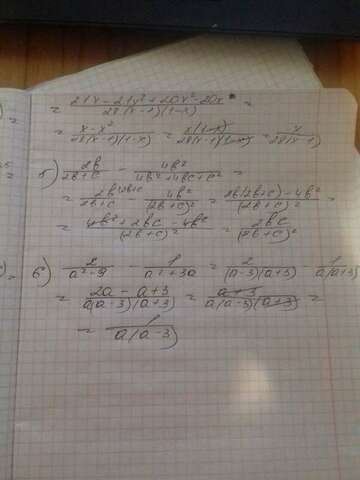 = (21x - 21x² + 20x² - 20x) / (28(x-1)(1-x)) =
= (x - x²) / (28(x-1)(1-x)) = x(1-x) / (28(x-1)(1-x)) = x / (28(x-1))
5) 2b / (2b+c) - 4b² / (4b²+4bc+c²) =
= 2b^(2b+c) / (2b+c) - 4b² / (2b+c)² = (2b(2b+c) - 4b²) / (2b+c)² =
= (4b² + 2bc - 4b²) / (2b+c)² = 2bc / (2b+c)²
6) 2 / (a²-9) - 1 / (a²+3a) = 2 / ((a-3)(a+3)) - 1 / (a(a+3))
= (2a - a+3) / (a(a-3)(a+3)) = (a+3) / (a(a-3)(a+3)) =
= 1 / (a(a-3))